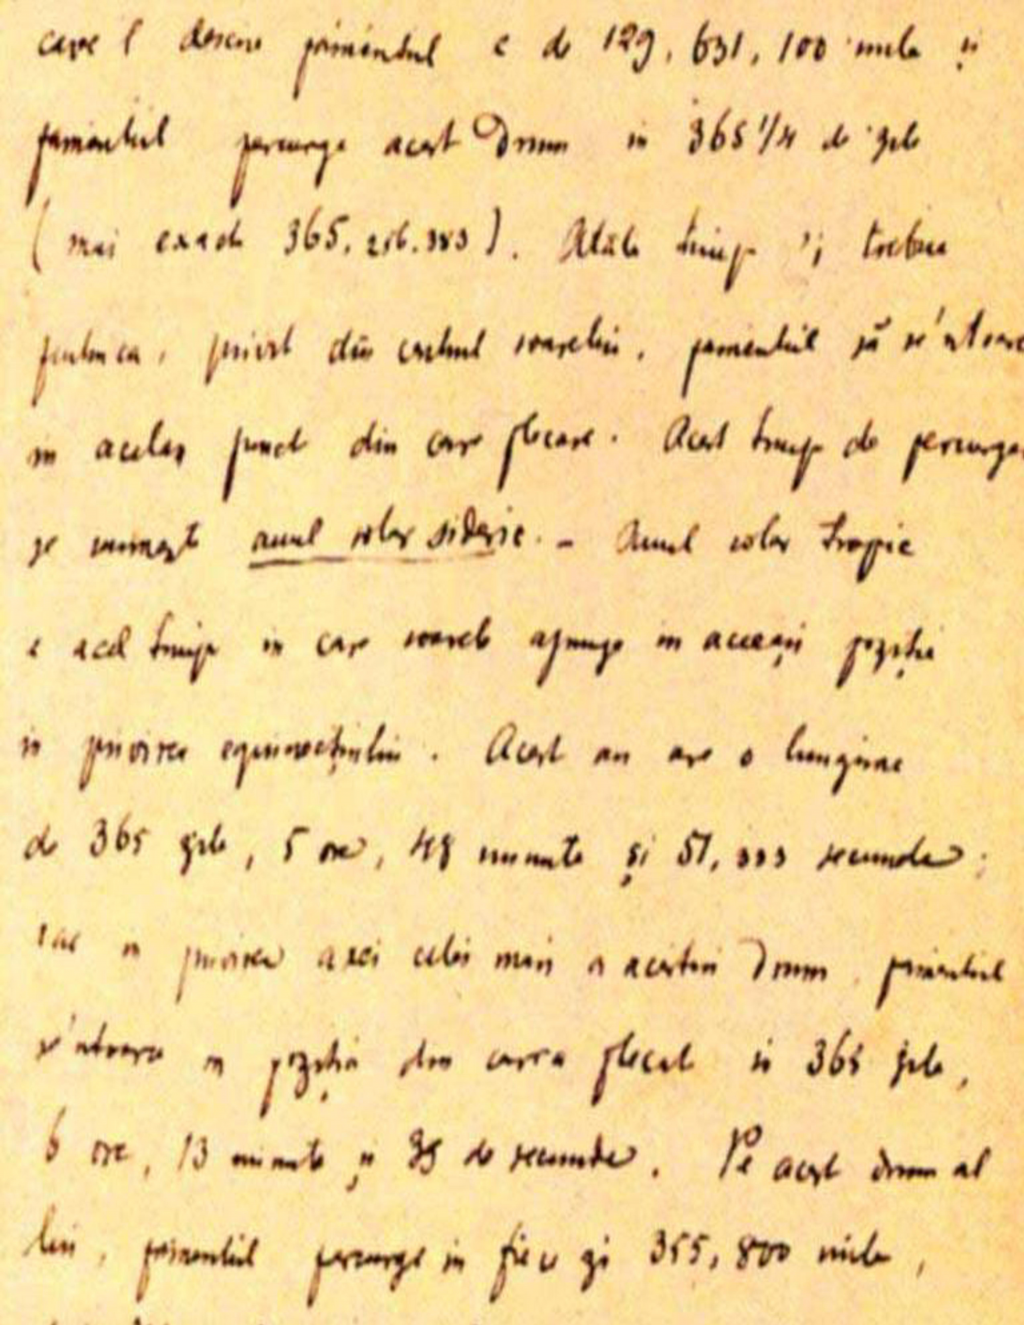 care l descrie pămîntul e de 129,631,100 mile și
pămîntul parcurge acest drum in 365 1/4 de zile
(mai exact 365.256.383). Atâta timp 'i trebue
pentru ca, privit din centrul soarelui, pamentul să se'ntoarcă
in acelaș punct din care plecase. Acest timp de percurge
se numește anul solar sideric. – Anul solar tropic
e acel timp in care soarele ajunge in aceeași poziția
in privirea equinocțiului. Acest an are o lungime
de 365 zile, 5 ore, 48 minute și 51,333 secunde;
iar in privirea axei celei mari a acestui drum, pamentul
se'ntoarce in poziția din care a plecat in 365 zile,
6 ore, 13 minute și 35 de secunde. Pe acest drum al
lui, pamentul parcurge in fie ce zi 355,800 mile,